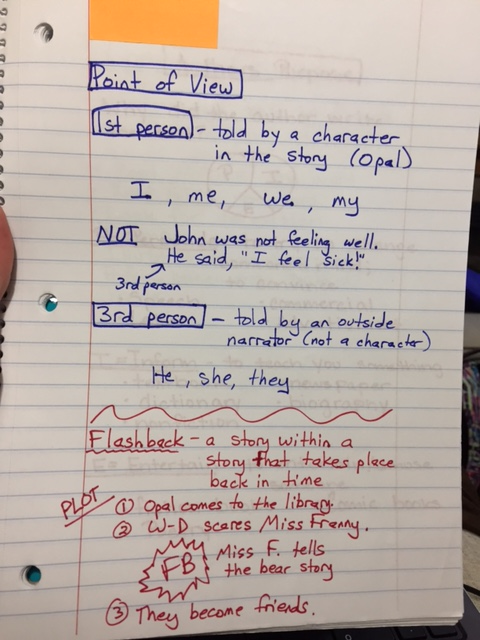 Point of View
1st person - told by a character
in the story (Opal)
I, me, we, my
NOT John was not feeling well.
He said, "I feel sick!"
3rd person
3rd person - told by an outside
narrator (not a character)
He, she, they
Flashback - a story within a
story that takes place
back in time
PLOT
① Opal comes to the library.
② W-D scares Miss Franny.
FB Miss F. tells
the bear story
③ They become friends.